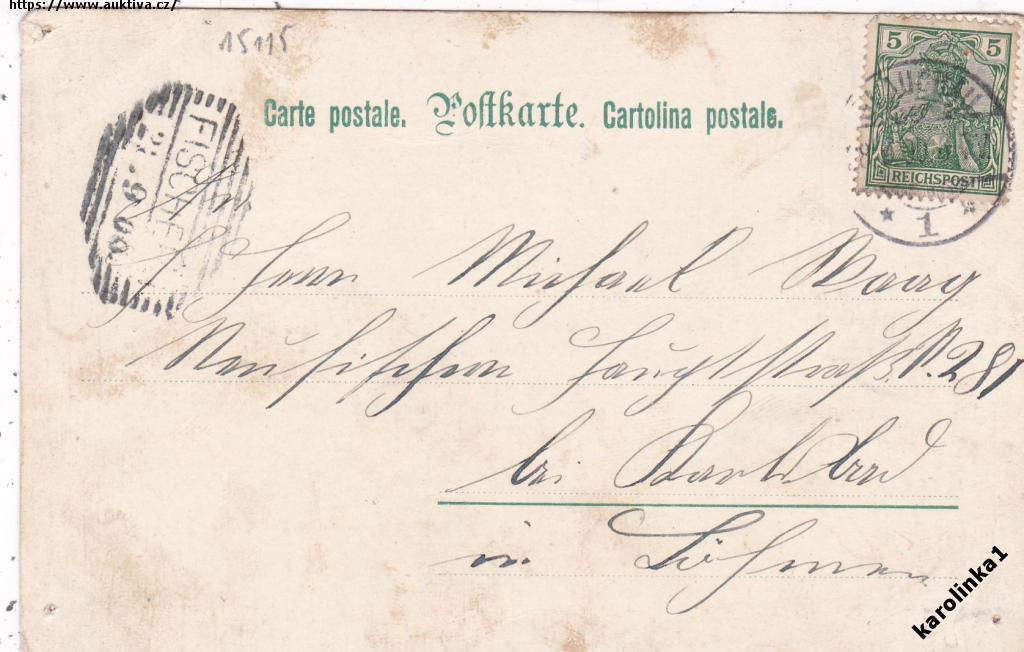 https://www.auktiva.cz/
15115
Carte postale. Postkarte. Cartolina postale.
5 5
REICHSPOST
1
FISCHE
21 9 00
An
Herrn Michael
Hauptstraße 281
bei Karlsbad
in Böhmen
karolinka1